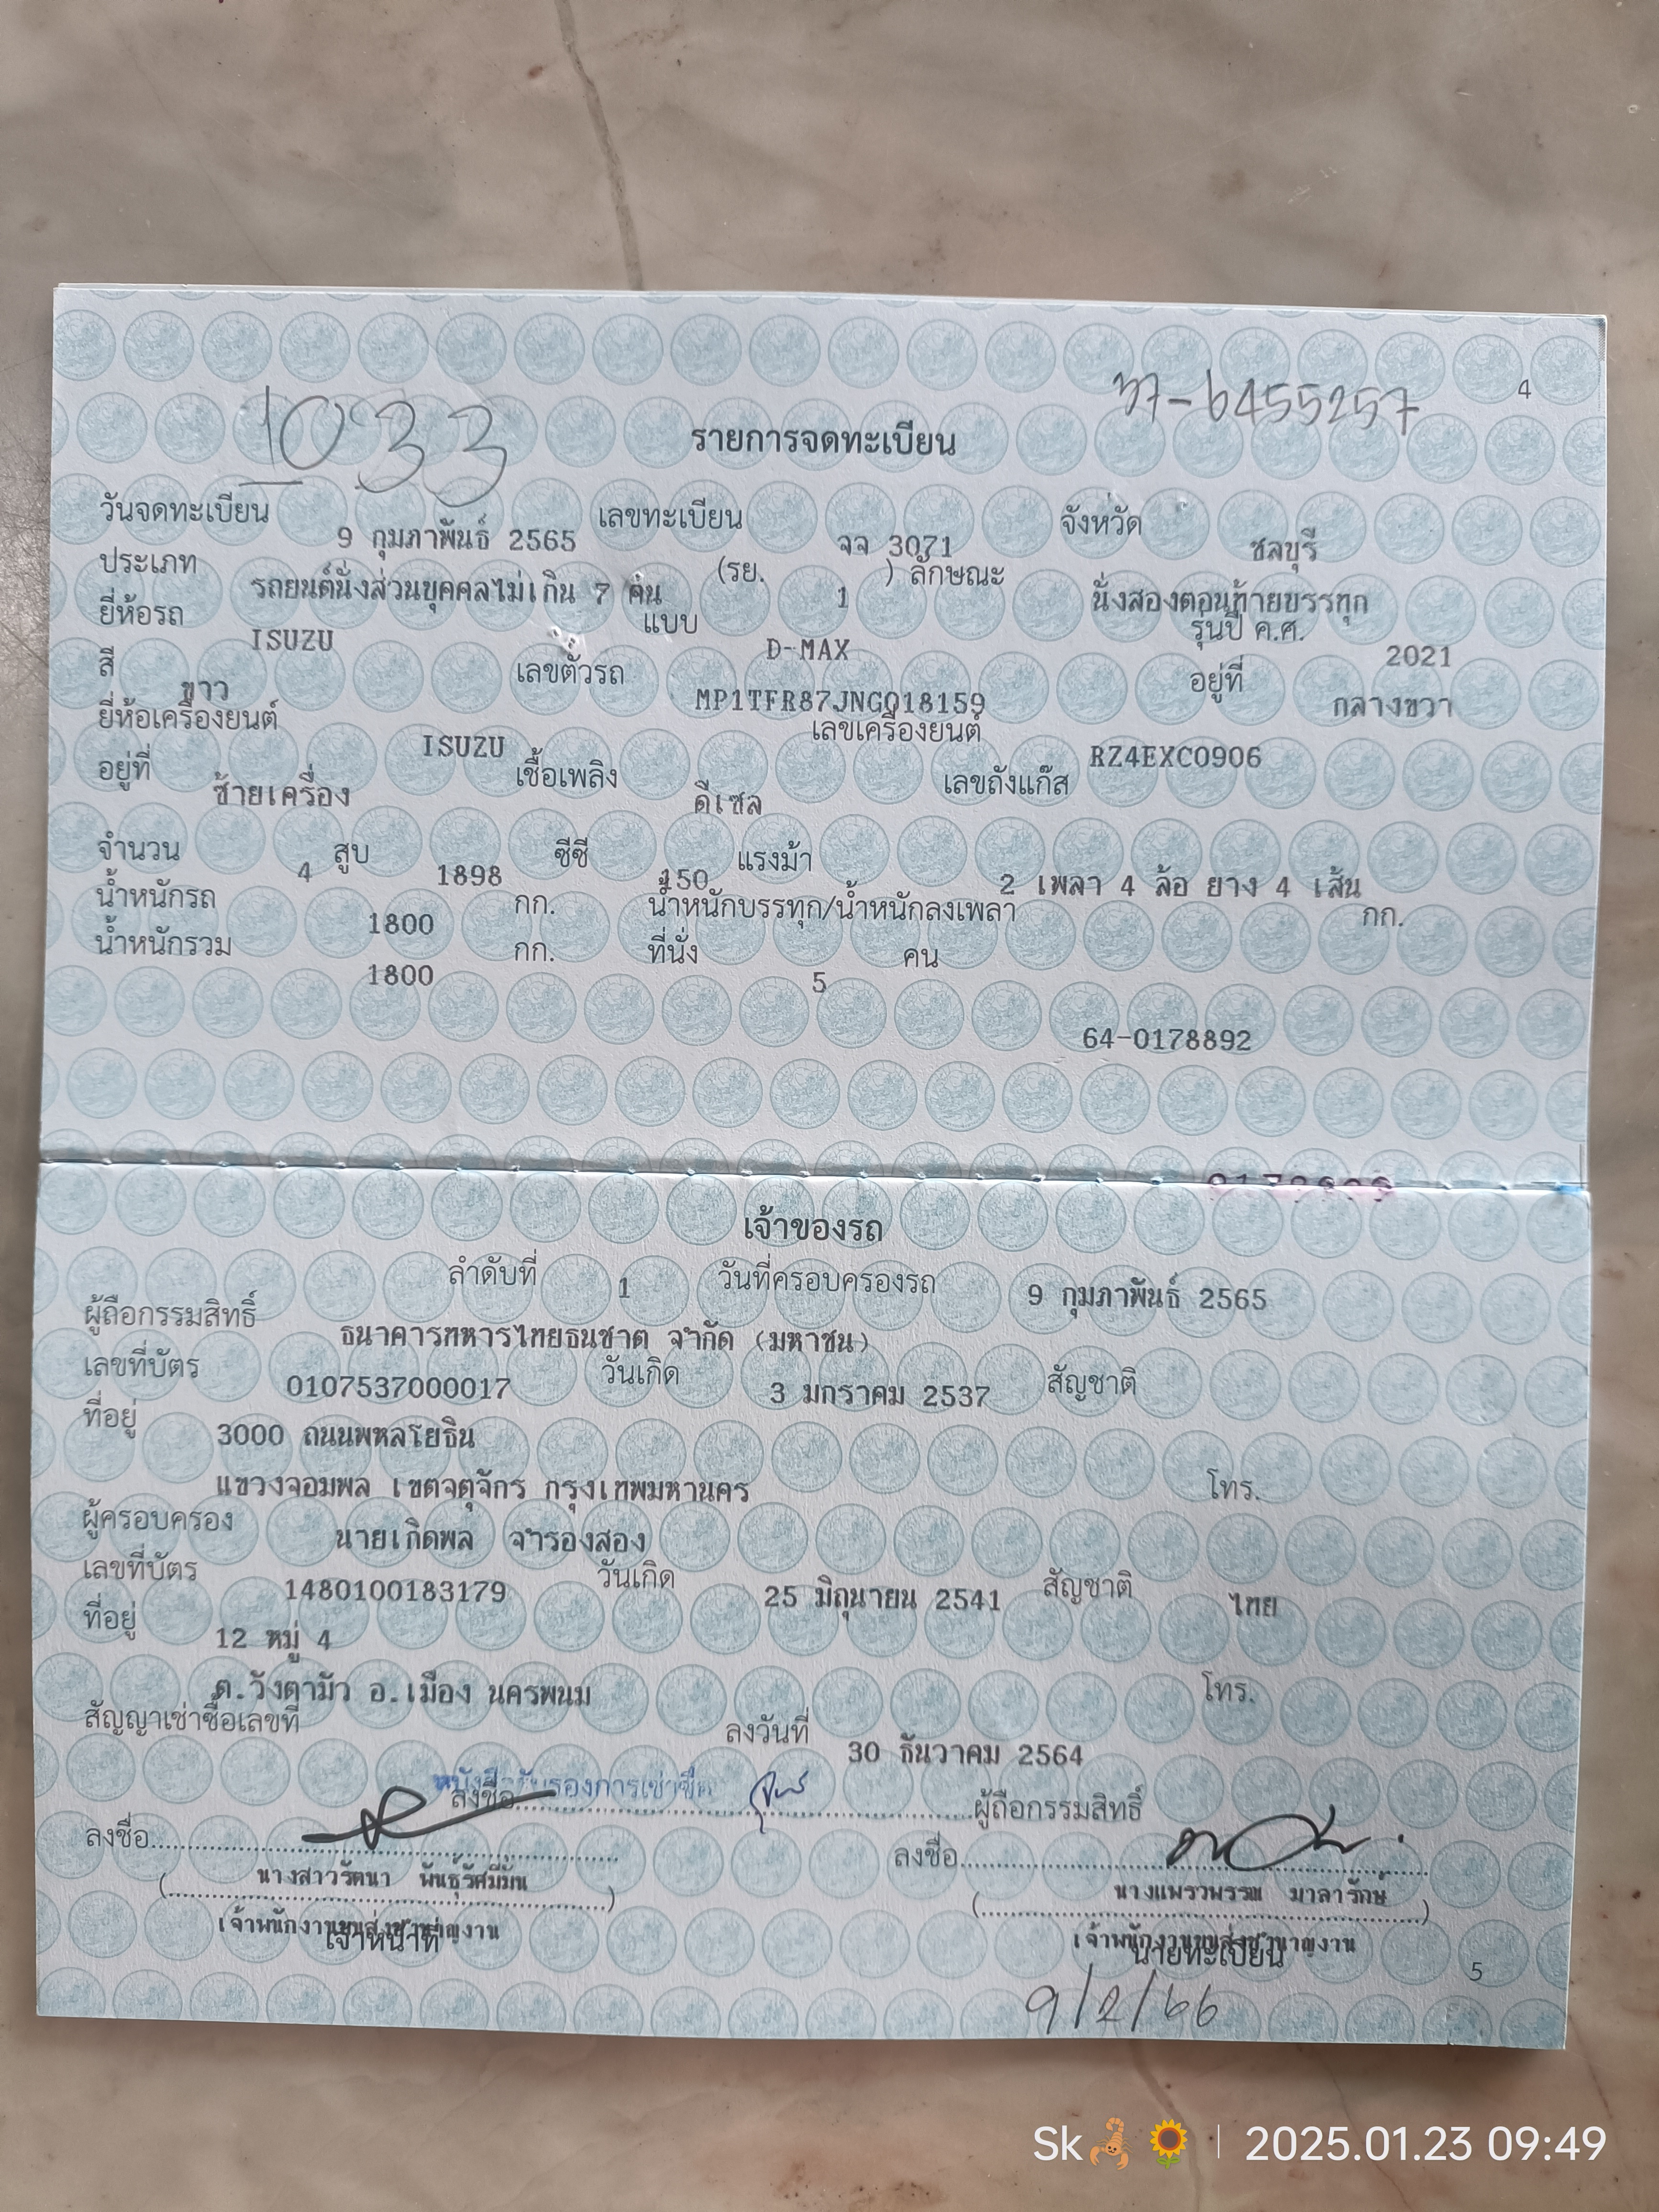 4
1033
37-6455257
รายการจดทะเบียน
วันจดทะเบียน 9 กุมภาพันธ์ 2565 เลขทะเบียน จจ 3071 จังหวัด ชลบุรี
ประเภท รถยนต์นั่งส่วนบุคคลไม่เกิน 7 คน (รย. 1 ) ลักษณะ นั่งสองตอนท้ายบรรทุก
ยี่ห้อรถ ISUZU แบบ D-MAX รุ่นปี ค.ศ. 2021
สี ขาว เลขตัวรถ MP1TFR87JNG018159 อยู่ที่ กลางขวา
ยี่ห้อเครื่องยนต์ ISUZU เลขเครื่องยนต์ RZ4EXC0906
อยู่ที่ ซ้ายเครื่อง เชื้อเพลิง ดีเซล เลขถังแก๊ส
จำนวน 4 สูบ 1898 ซีซี 150 แรงม้า 2 เพลา 4 ล้อ ยาง 4 เส้น
น้ำหนักรถ 1800 กก. น้ำหนักบรรทุก/น้ำหนักลงเพลา กก.
น้ำหนักรวม 1800 กก. ที่นั่ง 5 คน
64-0178892
เจ้าของรถ
ลำดับที่ 1 วันที่ครอบครองรถ 9 กุมภาพันธ์ 2565
ผู้ถือกรรมสิทธิ์ ธนาคารทหารไทยธนชาต จำกัด (มหาชน)
เลขที่บัตร 0107537000017 วันเกิด 3 มกราคม 2537 สัญชาติ
ที่อยู่ 3000 ถนนพหลโยธิน
แขวงจอมพล เขตจตุจักร กรุงเทพมหานคร โทร.
ผู้ครอบครอง นายเกิดพล จำรองสอง
เลขที่บัตร 1480100183179 วันเกิด 25 มิถุนายน 2541 สัญชาติ ไทย
ที่อยู่ 12 หมู่ 4
ต.วังตามัว อ.เมือง นครพนม โทร.
สัญญาเช่าซื้อเลขที่ ลงวันที่ 30 ธันวาคม 2564
หนังสือรับรองการเช่าซื้อ
ลงชื่อ ผู้ถือกรรมสิทธิ์
ลงชื่อ ลงชื่อ
(นางสาวรัตนา พันธุ์รัศมีมัน) (นางแพรวพรรณ มาลารักษ์)
เจ้าพนักงานขนส่งชำนาญงาน เจ้าพนักงานขนส่งชำนาญงาน
เจ้าหน้าที่ นายทะเบียน
5
9/2/66
Sk🦂🌻 | 2025.01.23 09:49